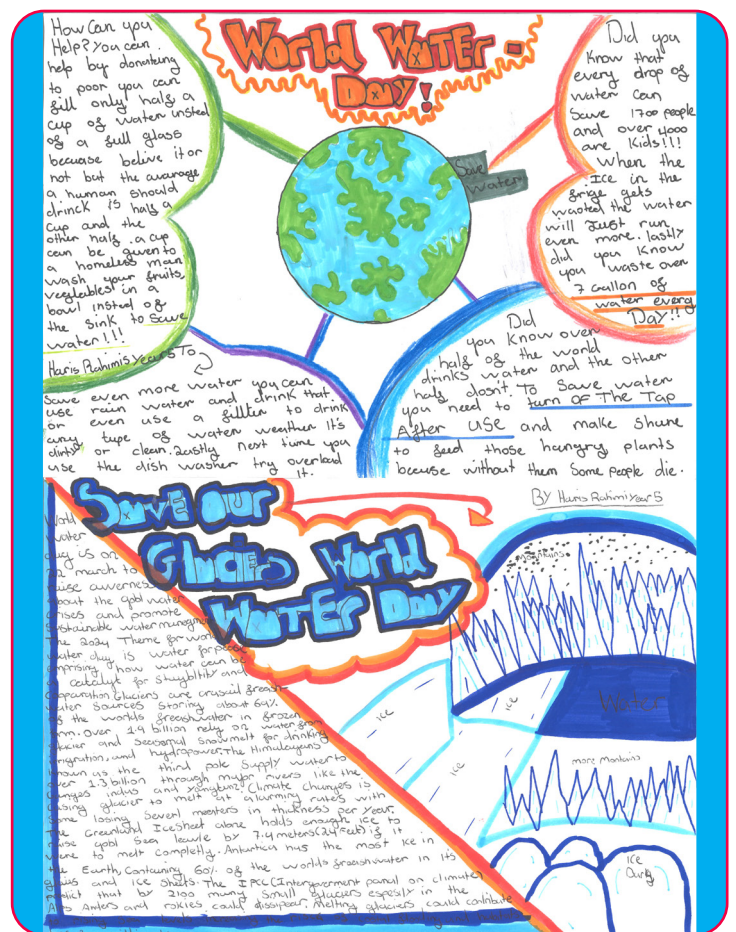 World Water
Day!
How Can you
Help? You can
help by donateing
to poor you can
fill only half a
cup of water insted
of a full glass
because belive it or
not but the avarage
a human should
drinck is half a
cup and the
other half a cup
can be given to
a homeless man
wash your fruits,
vegetables in a
bowl insted of
the sink to save
water!!!
Haris Rahimi
Save
water
Did you
Know that
every drop of
water can
save 1700 people
and over 4000
are Kids!!!
when the
Ice in the
gets
the water
will Just run
even more. lastly
did you know
you waste over
7 Gallon of
water every
Day!!
save even more water you can
use rain water and drink that.
or even use a to drink
any type of water weather It's
dirty or clean. Lastly next time you
use the dish washer try overload
it.
Did
you Know over
half of the world
drinks water and the other
half dosn't. To Save water
you need to turn of The Tap
After use and make
to feed those hangry plants
because without them Some people die.
By Haris Rahimi year 5
Save our
World
Water Day
World
water
day is on
22 march to
raise
about the water
crises and promote
sustainable
The 2024 Theme for world
water day is water for peace
how water can be
a catalyst for and
Glaciers are
water sources storing about 69%
of the worlds freashwater in frozen
form. Over 1.9 billion rely on water from
glacier and seasonal snowmelt for drinking
and hydropower. The
known as the third pole supply water to
over 1.3 billion through major rivers like the
indus and Climate changes is
glacier to melt at alarming rates with
some losing several in thickness per year.
The Greenland Icesheet alone holds enough ice to
raise Sea by 7.4 meters (24 Feet) if it
were to melt completly. has the most ice in
the Earth, containing 60% of the worlds freashwater in its
and ice sheets. The IPCC (Intergoverment on climate)
that by 2100 many small glaciers in the
and could Melting glaciers could contribute
Mountains
Ice
Water
Ice
Ice
more montains
Ice